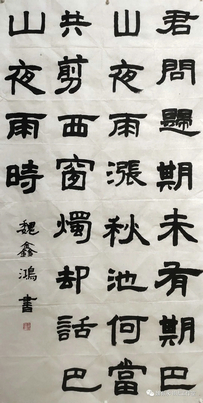 君問歸期未有期巴
山夜雨漲秋池何當
共剪西窗燭却話巴
山夜雨時
魏鑫鴻書